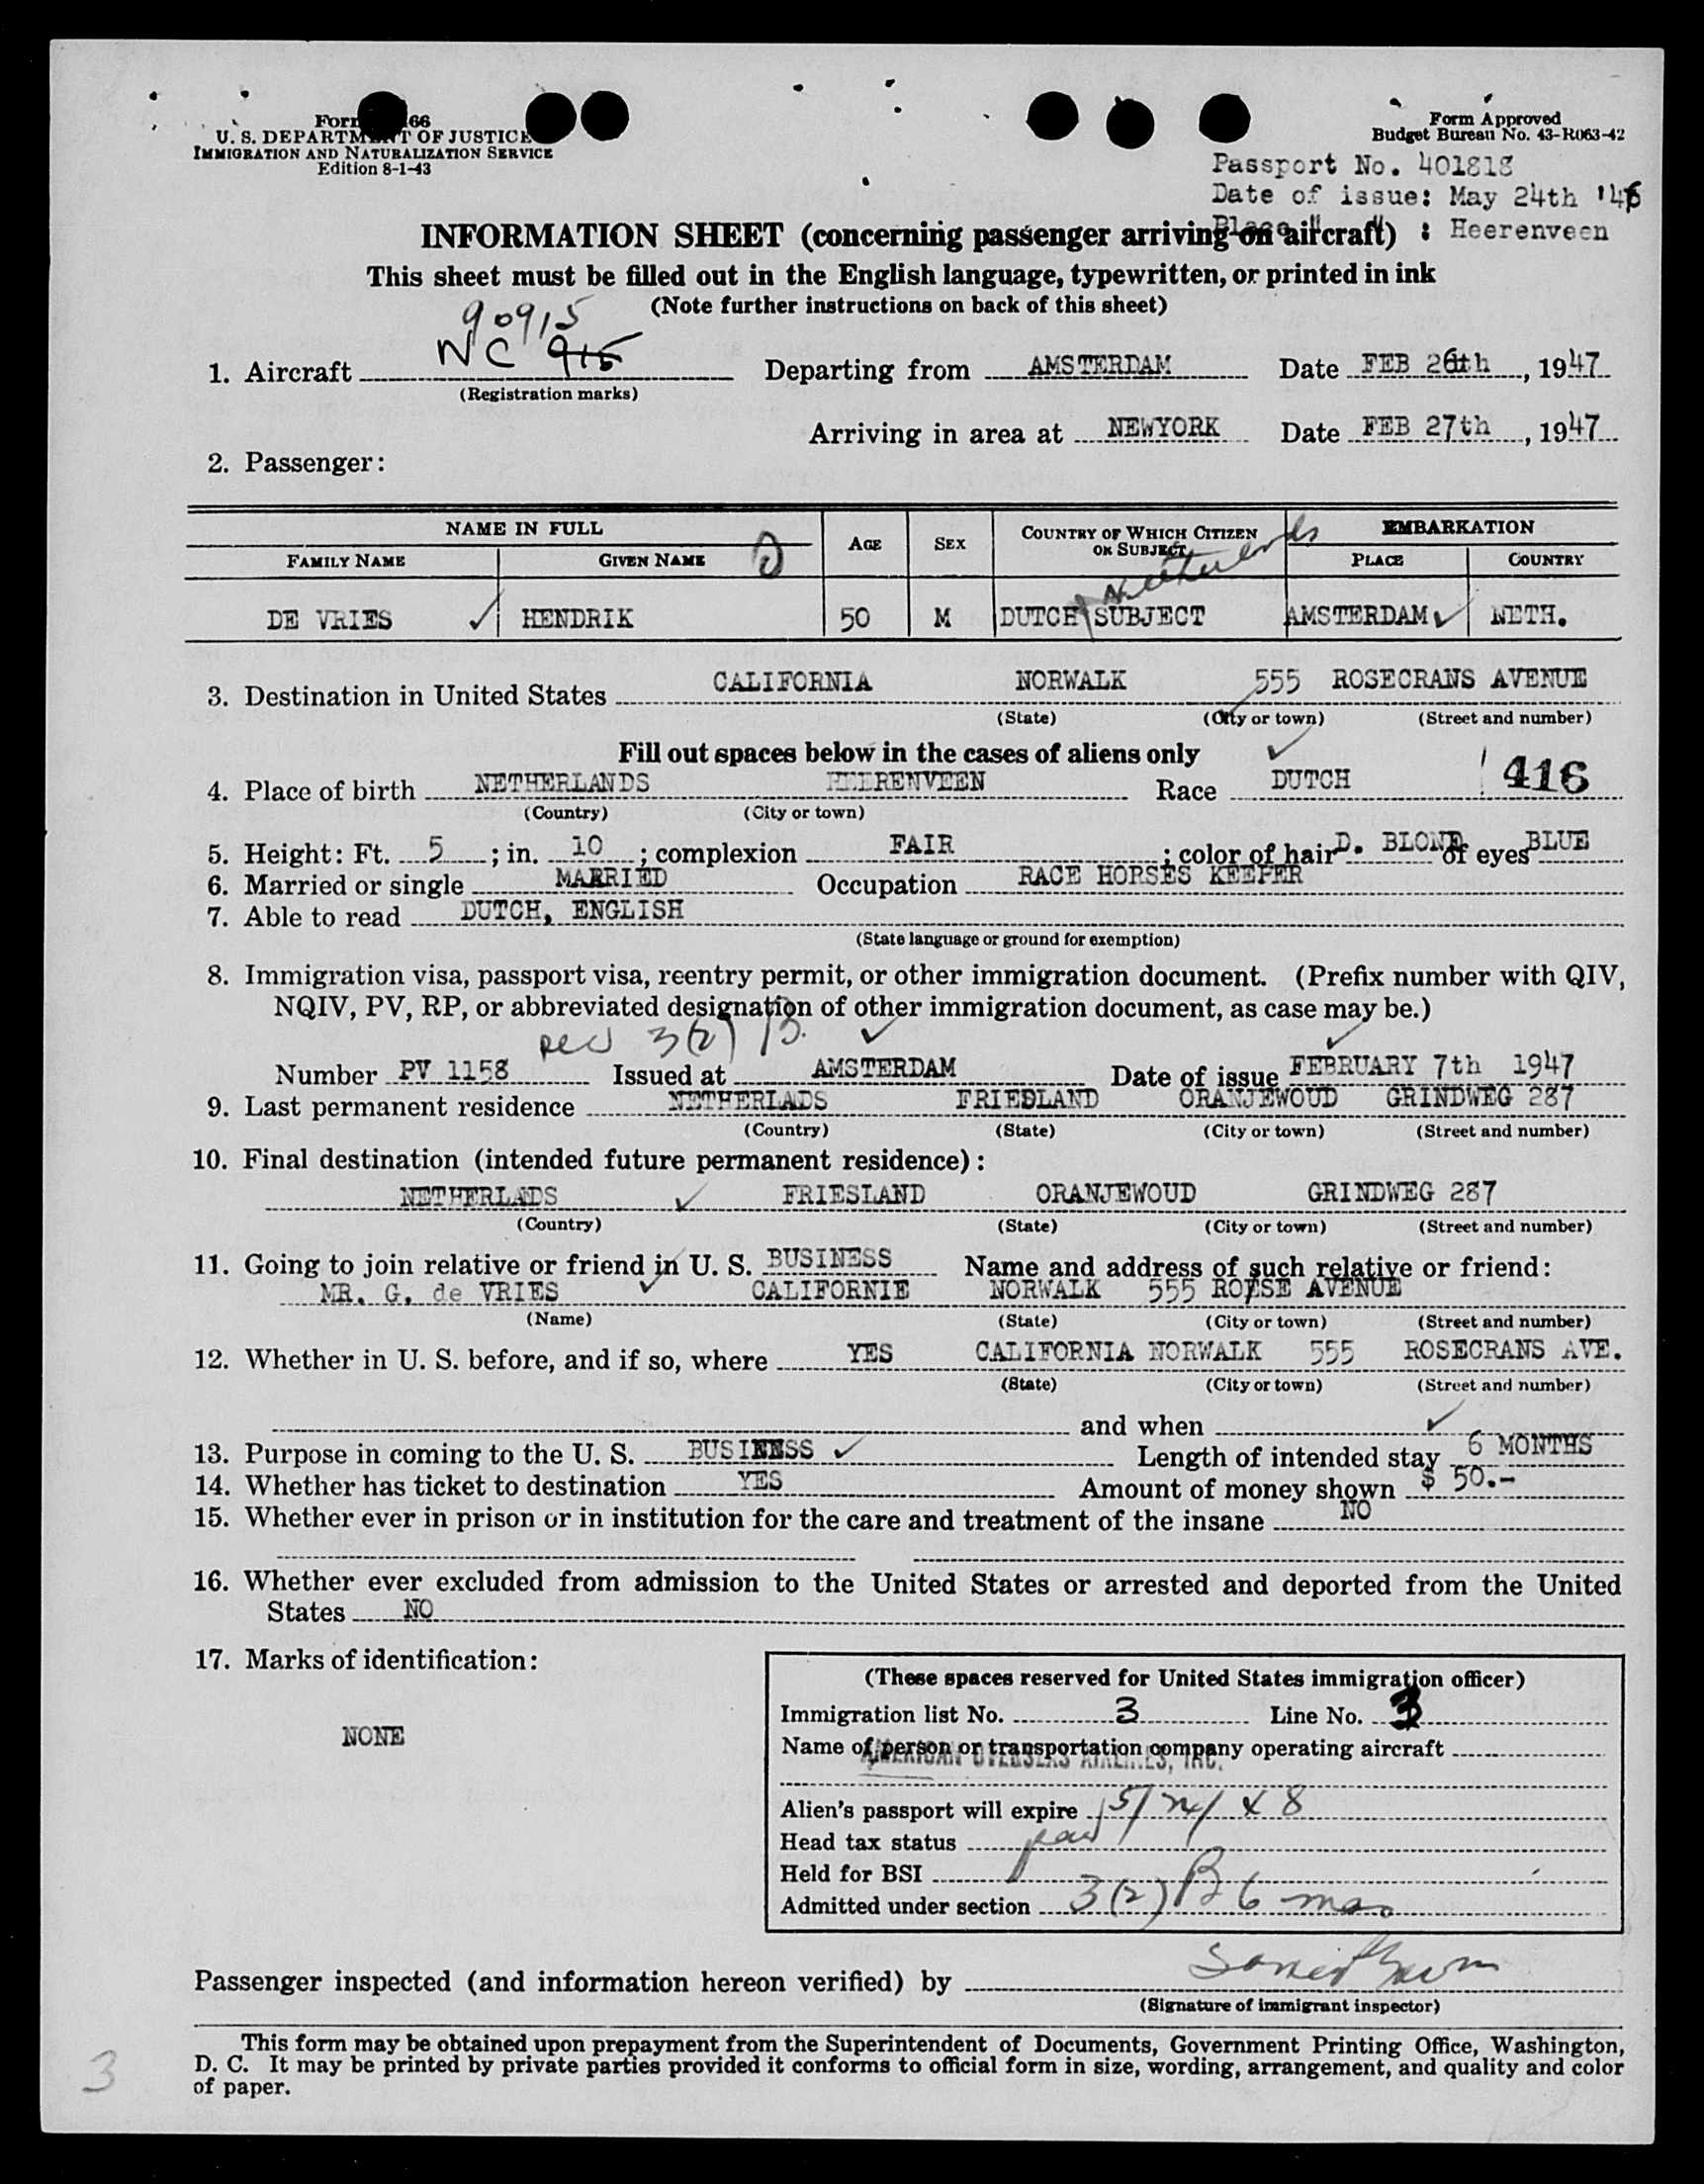 Form 66
U. S. DEPARTMENT OF JUSTICE
IMMIGRATION AND NATURALIZATION SERVICE
Edition 8-1-43
Form Approved
Budget Bureau No. 43-R063-42
Passport No. 401818
Date of issue: May 24th '46
Place " " : Heerenveen
INFORMATION SHEET (concerning passenger arriving on aircraft)
This sheet must be filled out in the English language, typewritten, or printed in ink
(Note further instructions on back of this sheet)
90915
1. Aircraft NC 915 Departing from AMSTERDAM Date FEB 26th, 1947
(Registration marks)
Arriving in area at NEWYORK Date FEB 27th, 1947
2. Passenger:
NAME IN FULL AGE SEX COUNTRY OF WHICH CITIZEN OR SUBJECT EMBARKATION
FAMILY NAME GIVEN NAME PLACE COUNTRY
Netherlands
DE VRIES HENDRIK 50 M DUTCH SUBJECT AMSTERDAM NETH.
3. Destination in United States CALIFORNIA NORWALK 555 ROSECRANS AVENUE
(State) (City or town) (Street and number)
Fill out spaces below in the cases of aliens only
4. Place of birth NETHERLANDS HEERENVEEN Race DUTCH 416
(Country) (City or town)
5. Height: Ft. 5; in. 10; complexion FAIR; color of hair D. BLOND of eyes BLUE
6. Married or single MARRIED Occupation RACE HORSES KEEPER
7. Able to read DUTCH, ENGLISH
(State language or ground for exemption)
8. Immigration visa, passport visa, reentry permit, or other immigration document. (Prefix number with QIV,
NQIV, PV, RP, or abbreviated designation of other immigration document, as case may be.)
3(2) B.
Number PV 1158 Issued at AMSTERDAM Date of issue FEBRUARY 7th 1947
9. Last permanent residence NETHERLADS FRIESLAND ORANJEWOUD GRINDWEG 287
(Country) (State) (City or town) (Street and number)
10. Final destination (intended future permanent residence):
NETHERLADS FRIESLAND ORANJEWOUD GRINDWEG 287
(Country) (State) (City or town) (Street and number)
11. Going to join relative or friend in U. S. BUSINESS Name and address of such relative or friend:
MR. G. de VRIES CALIFORNIE NORWALK 555 ROESE AVENUE
(Name) (State) (City or town) (Street and number)
12. Whether in U. S. before, and if so, where YES CALIFORNIA NORWALK 555 ROSECRANS AVE.
(State) (City or town) (Street and number)
and when
13. Purpose in coming to the U. S. BUSINESS Length of intended stay 6 MONTHS
14. Whether has ticket to destination YES Amount of money shown $ 50.-
15. Whether ever in prison or in institution for the care and treatment of the insane NO
16. Whether ever excluded from admission to the United States or arrested and deported from the United
States NO
17. Marks of identification:
NONE
(These spaces reserved for United States immigration officer)
Immigration list No. 3 Line No. 3
Name of person or transportation company operating aircraft
AMERICAN OVERSEAS AIRLINES, INC.
Alien's passport will expire 5/24/48
Head tax status paid
Held for BSI
Admitted under section 3(2) B 6 mos
Passenger inspected (and information hereon verified) by
(Signature of immigrant inspector)
This form may be obtained upon prepayment from the Superintendent of Documents, Government Printing Office, Washington,
D. C. It may be printed by private parties provided it conforms to official form in size, wording, arrangement, and quality and color
of paper.
3